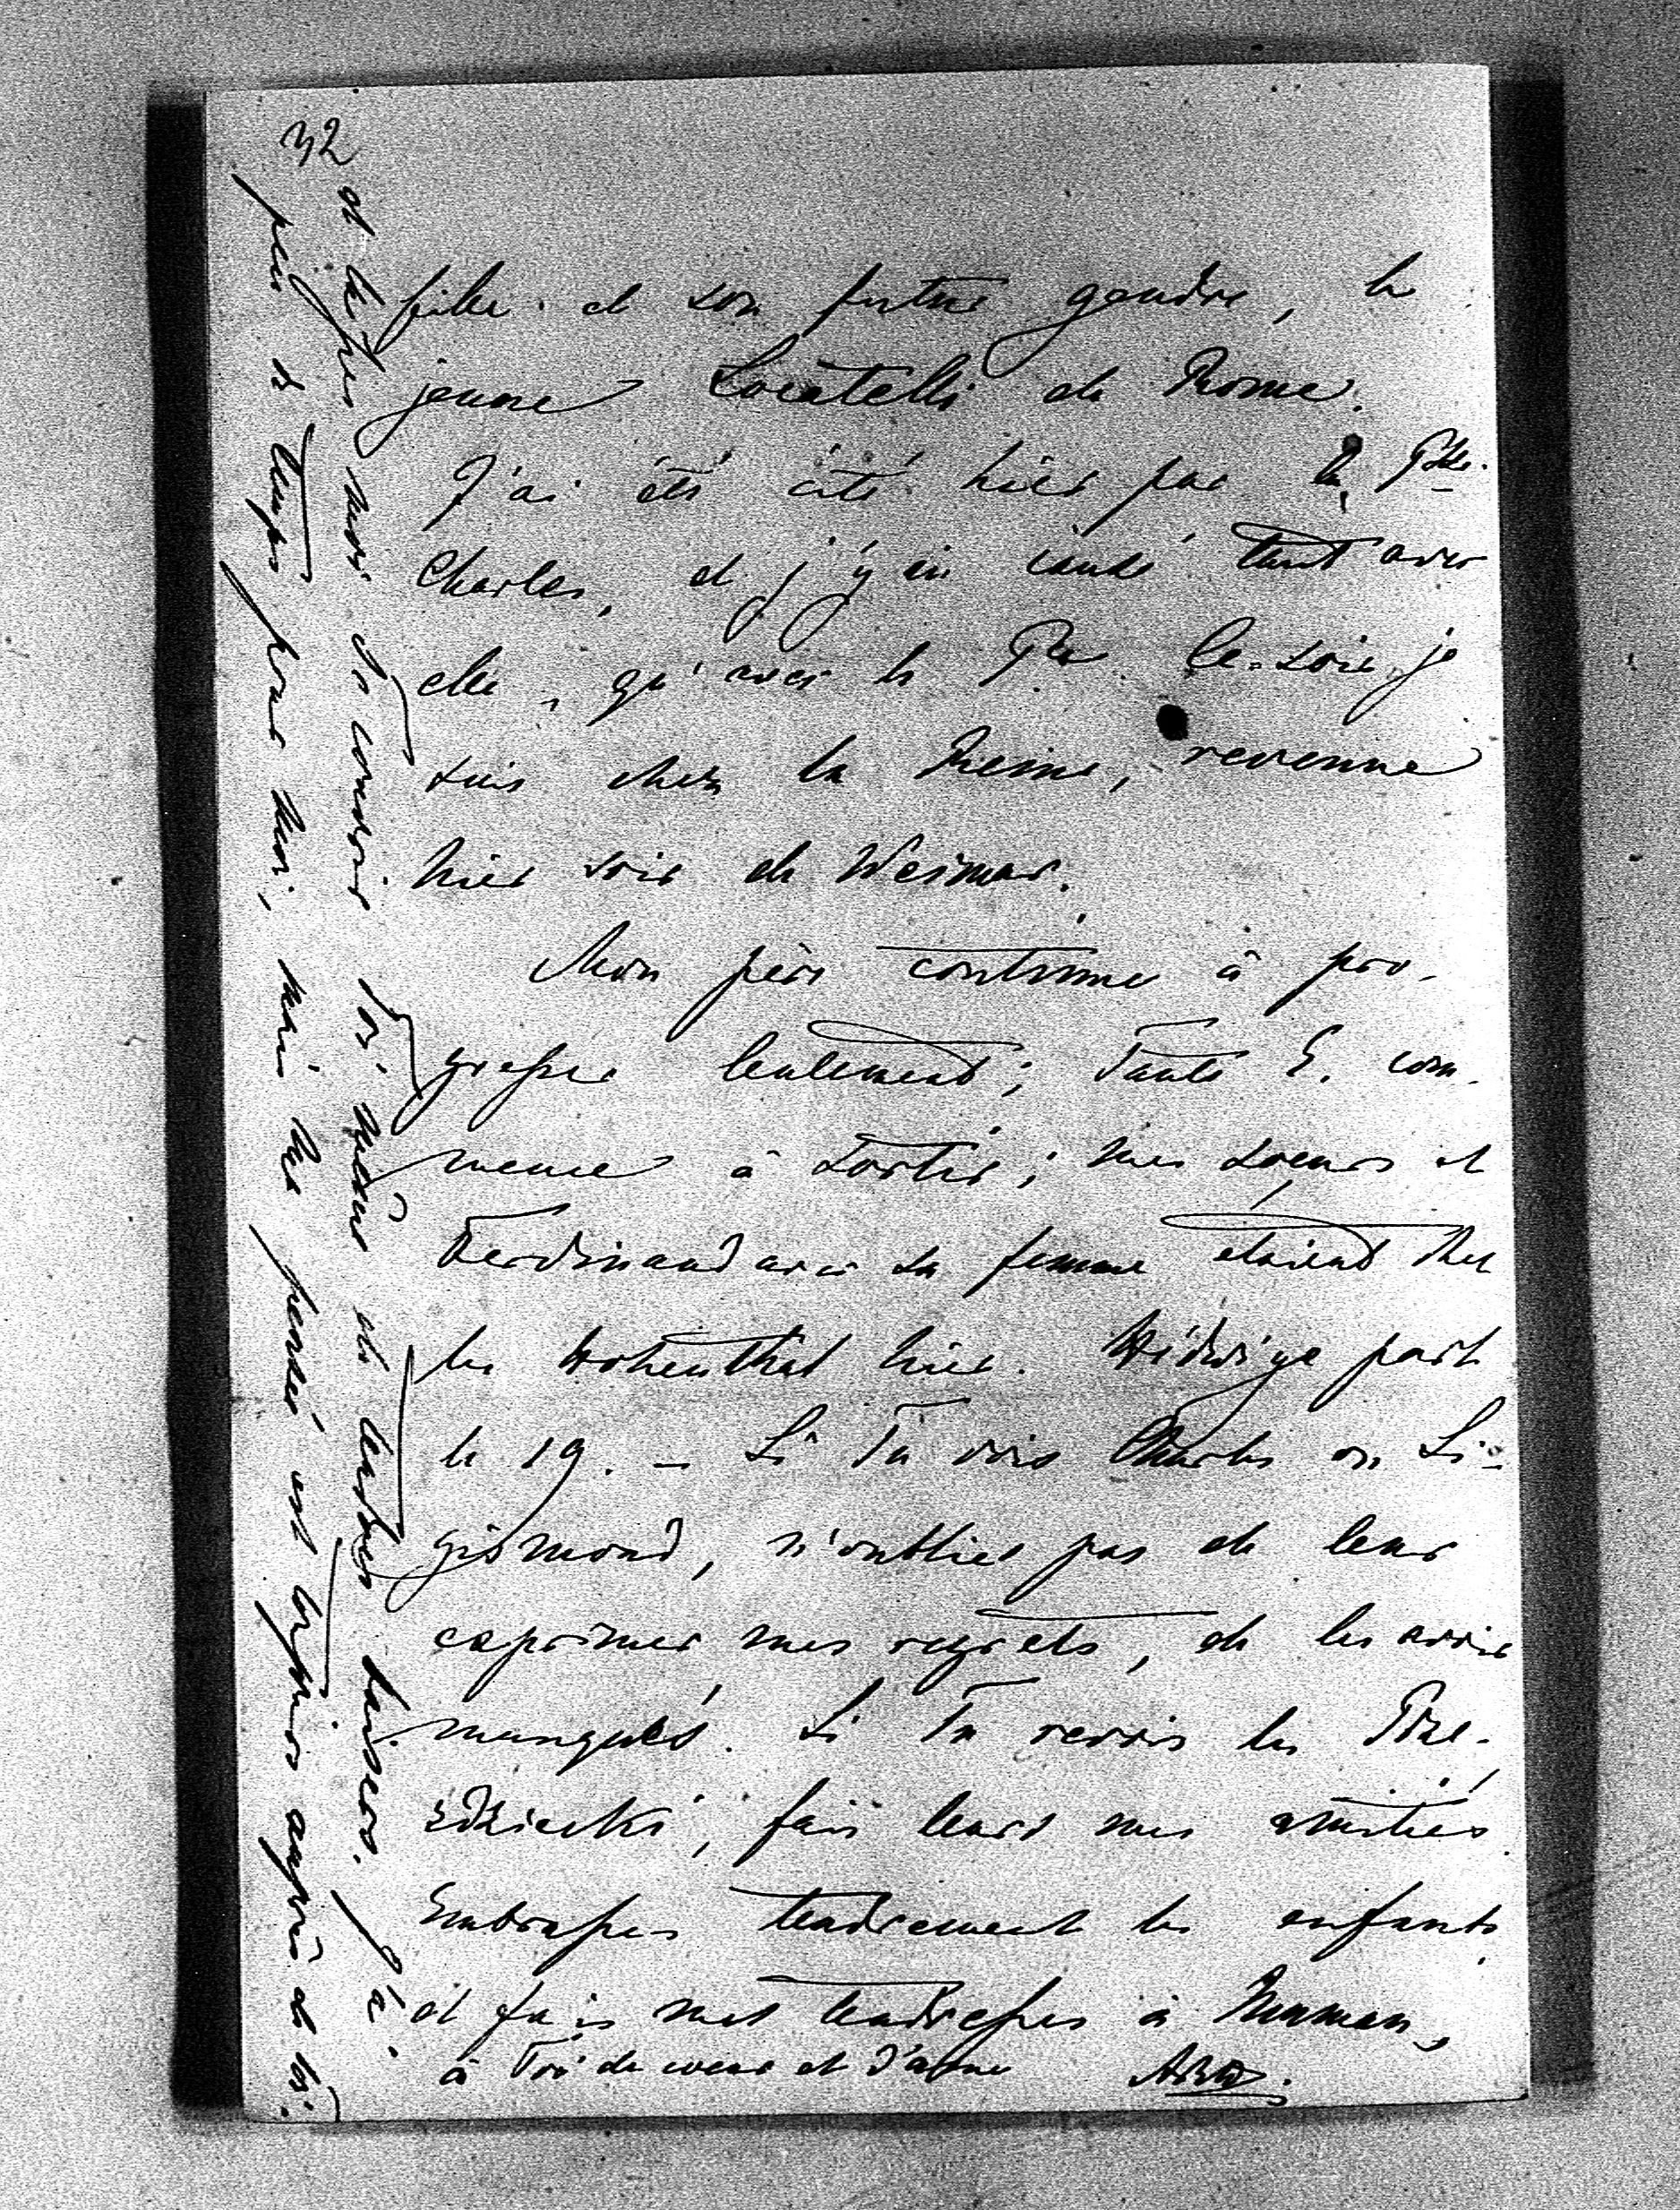 32
fille et son futur gendre, le
jeune Locatelli de Rome.
J'ai été cité hier par la Psse
Charles, et j'y ai causé tant avec
elle, qu'avec le Pce. Ce soir je
suis chez la Reine, revenue
hier soir de Weimar.
Mon père continue à pro-
gresser lentement; Tante E. com-
mence à sortir; mes soeurs et
Ferdinand avec sa femme étaient chez
les Hohenthal hier. Hédwige part
le 19. – Si Tu vois Charles ou Si-
gismond, n'oublies pas de leur
exprimer mes regrets, de les avoir
manqués. Si Tu revois les Prze-
zdziecki, fais leurs mes amitiés.
Embrasses tendrement les enfants
et fais mes tendresses à Maman,
à Toi de coeur et d'âme
et de Toi même de tendres baisers. J'ai
peu de temps pour moi, mais ma pensée est toujours auprès de toi.